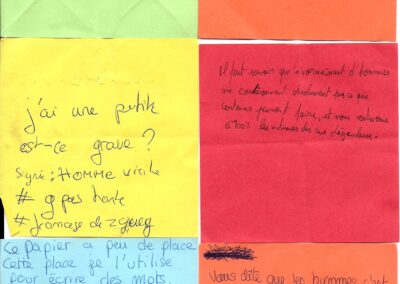 j'ai une petite
est-ce grave ?
signé : HOMME virile
# g pas honte
#
Il faut savoir qu'énormément d'hommes
ne cautionnent absolument pas ce que
certains peuvent faire, et nous soutenons
à 100% les victimes des ces dégueulasse.
Ce papier a peu de place
Cette place je l'utilise
pour écrire des mots.
Vous dite que les hommes c'est